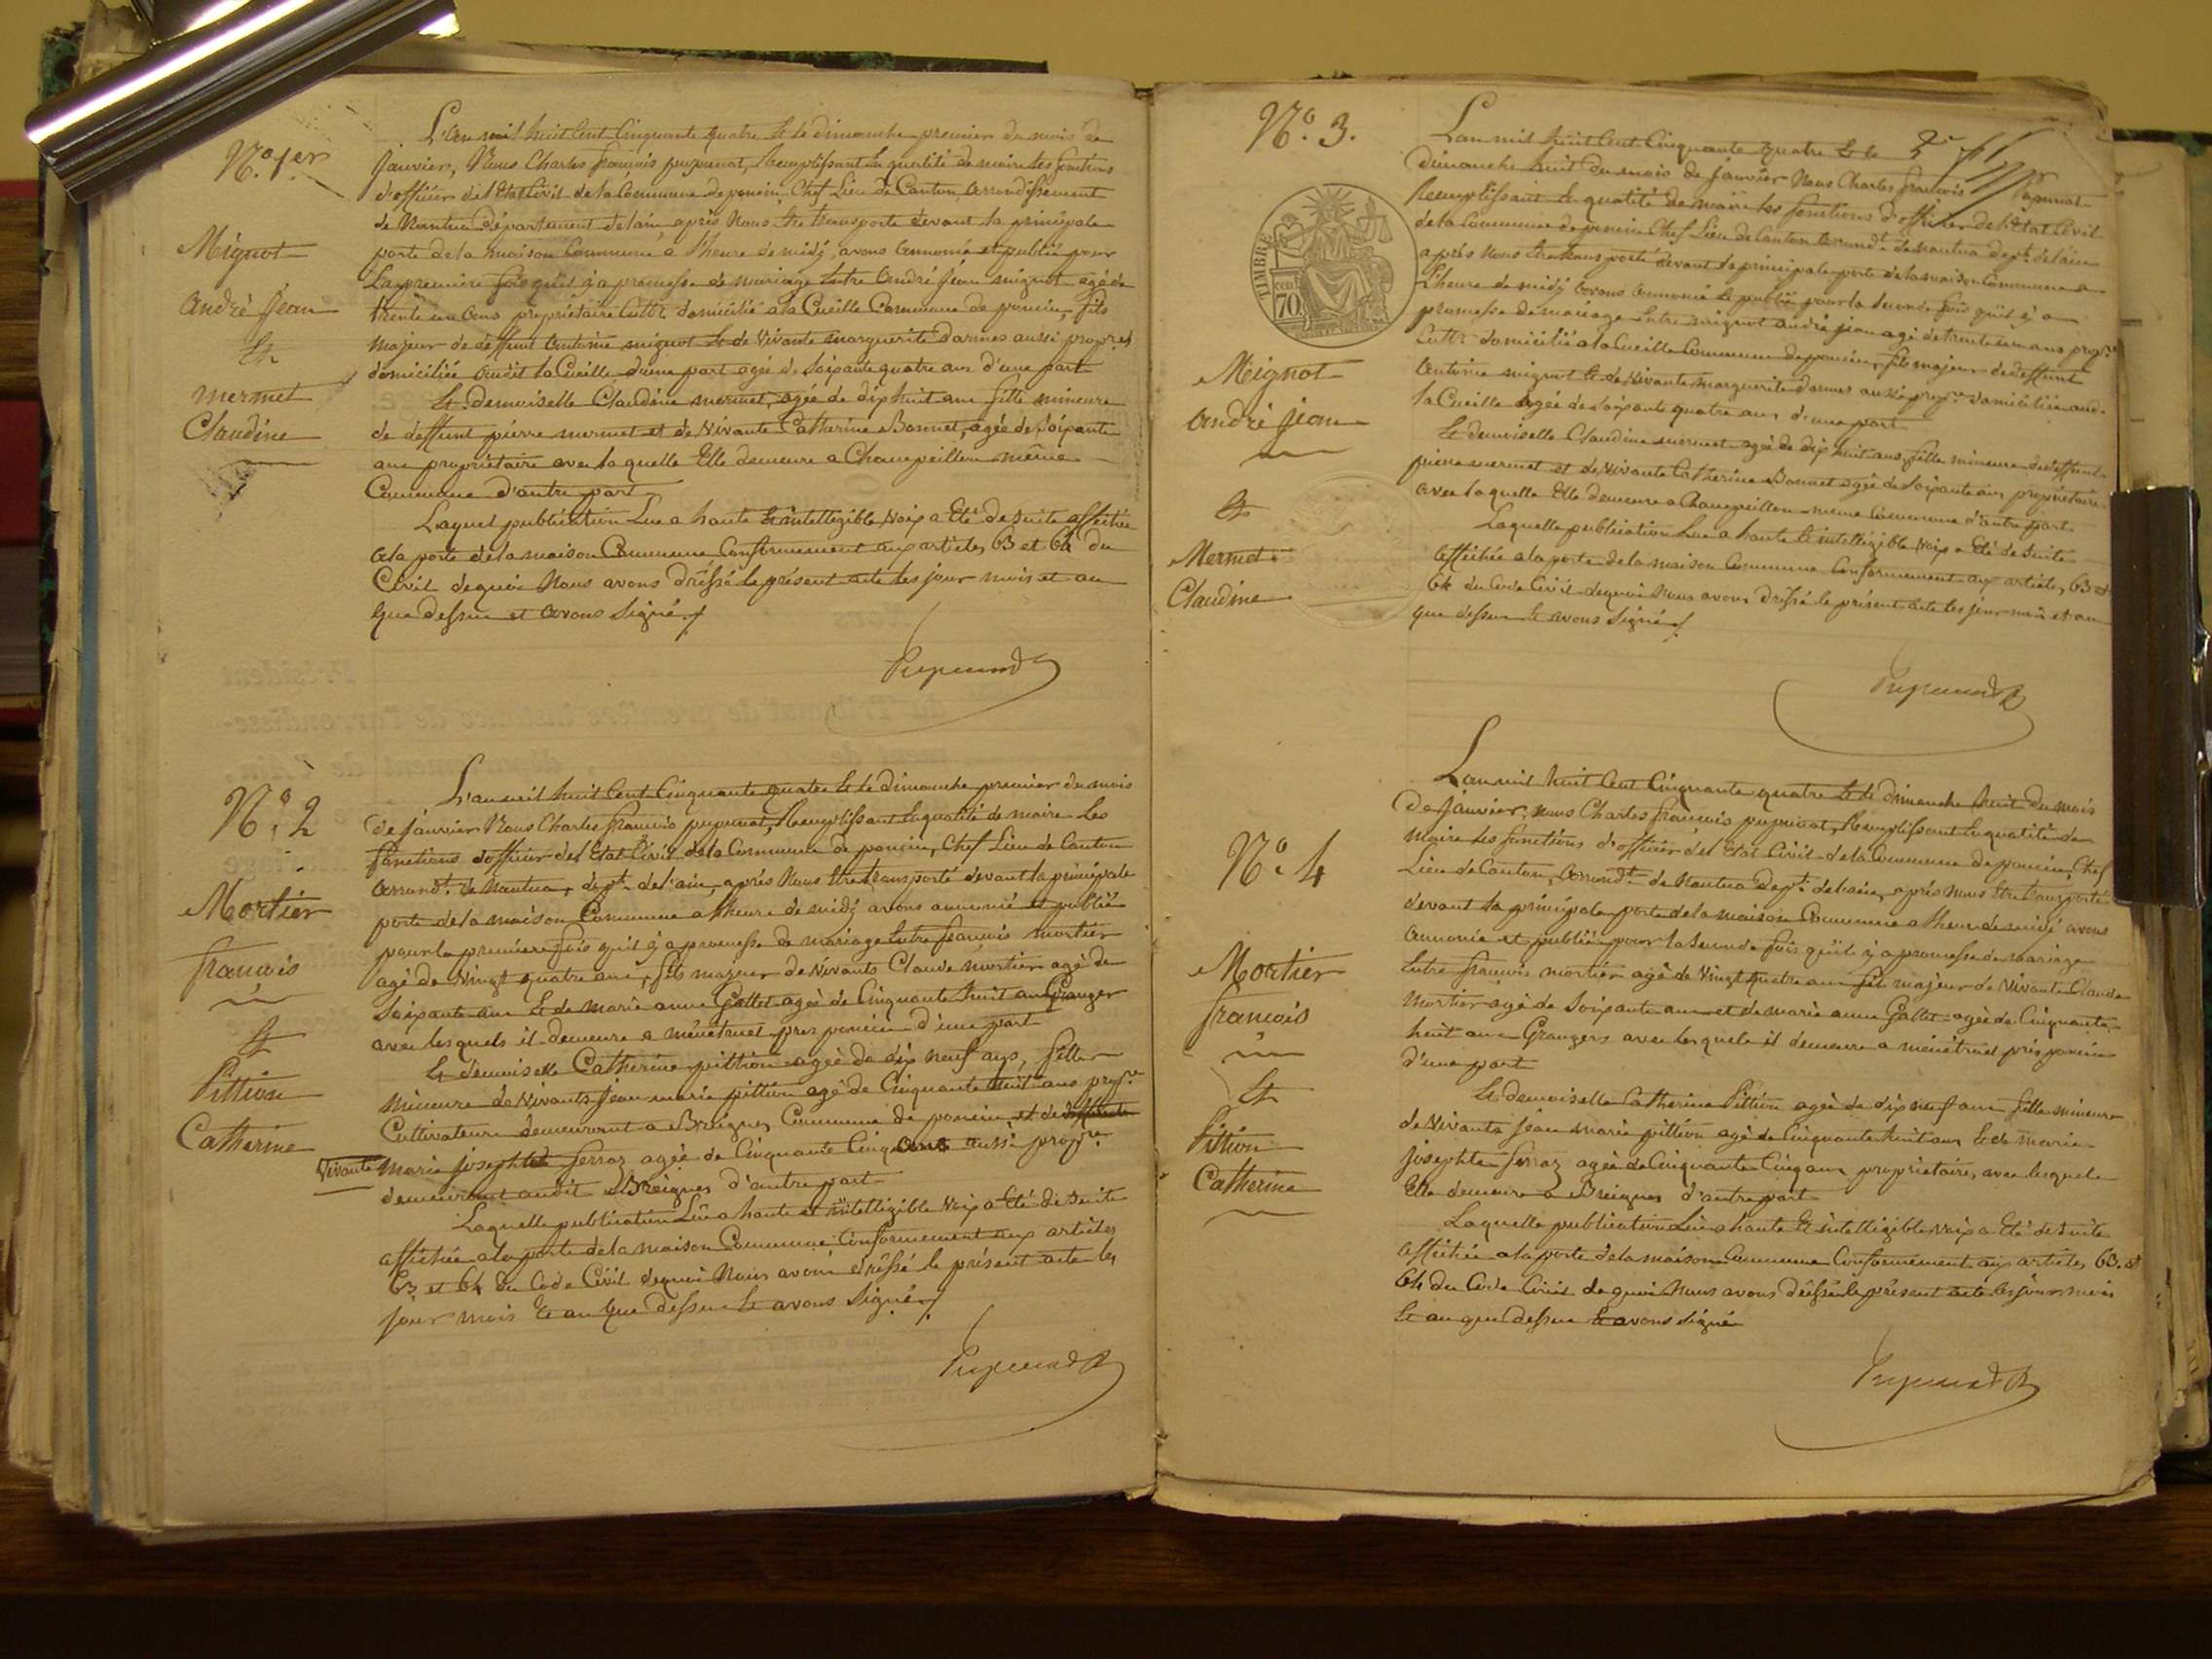 N.o 1.er
Mignot
André Jean
Et
mermet
Claudine
L'an mil huit Cent Cinquante quatre Et le dimanche premier du mois de
Janvier, Nous Charles françois pupunat, Remplissant En qualité de maire les fonctions
d'officier de l'Etat Civil de la Commune de poncin, Chef Lieu de Canton, Arrondissement
de Nantua Département de l'ain, après Nous Etre transporté devant la principale
porte de la maison Commune a l'heure de midj, avons annoncé et publié pour
La premiere fois qu'il ÿ a promesse de mariage Entre André Jean mignot agé de
trente un ans propriétaire Cultr. domicilié a la Cueille Commune de poncin, fils
majeur de deffunt Antoine mignot Et de Vivante marguerite darmes aussi propre.
domiciliée audit la Cueille d'une part agée de Soixante quatre ans d'une part
Et demoiselle Claudine mermet, agée de dix huit ans fille mineure
de deffunt pierre mermet et de Vivante Catherine Bonnet, agée de Soixante
ans propriétaire avec la quelle Elle demeure a Champeillon même
Commune d'autre part
Laquel publication Lue a haute Et intelligible Voix a Eté de suite affichée
a la porte de la maison Commune Conformement aux articles 63 et 64 du
Civil de quoi Nous avons dréssé le présent acte les jour mois et an
que dessus et avons Signé
N.o 2
Mortier
francois
Et
Pittion
Catherine
L'an mil huit Cent Cinquante quatre Et le dimanche premier du mois
de Janvier Nous Charles francois pupunat, Remplissant En qualité de maire les
fonctions d'officier de l'Etat Civil de la Commune de poncin, Chef Lieu de Canton
Arrondt. de Nantua, dept. de l'ain, après Nous Etre transporté devant la principale
porte de la maison Commune a l'heure de midj avons annoncé et publié
pour la premiere fois qu'il ÿ a promesse de mariage Entre francois mortier
agé de Vingt quatre ans, fils majeur de Vivants Claude mortier agé de
Soixante ans Et de marie anne Gallet agée de Cinquante huit ans Granger
avec lesquels il demeure a ménétruel pres poncin d'une part
Et demoiselle Catherine pittion agée de dix neuf ans, fille
mineure de Vivants Jean marie pittion agé de Cinquante huit ans propre.
Cultivateur demeurant a Breignes Commune de poncin, et de deffunte
Vivante marie josephte ferraz agée de Cinquante Cinq ans aussi propre.
demeurant audit Breignes d'autre part
Laquelle publication Lue a haute et intelligible Voix a Eté de suite
affichée a la porte de la maison Commune Conformement aux articles
63 et 64 du Code Civil de quoi Nous avons dréssé le présent acte les
jour mois Et an que dessus Et avons Signé
N.o 3.
TIMBRE
70
Mignot
André jean
Et
Mermet
Claudine
L'an mil huit Cent Cinquante quatre Et le
dimanche huit du mois de janvier Nous Charles francois Pupunat
Remplissant En qualité de maire les fonctions d'officier de l'Etat Civil
de la Commune de poncin Chef Lieu de Canton Arrondt. de nantua dept. de l'ain
après Nous Etre transporté devant la principale porte de la maison Commune a
L'heure de midj avons annoncé Et publié pour la seconde fois qu'il ÿ a
promesse de mariage Entre mignot andré jean agé de trente un ans propre.
Cultr. domicilié a la Cueille Commune de poncin, fils majeur de deffunt
Antoine mignot Et de Vivante marguerite darmes aussi propre. domiciliée aud.
la Cueille agée de soixante quatre ans d'une part
Et demoiselle Claudine mermet agée de dix huit ans, fille mineure de deffunt
pierre mermet et de Vivante Catherine Bonnet agée de soixante ans propriétaire
avec laquelle Elle demeure a Champeillon meme Commune d'autre part
Laquelle publication Lue a haute Et intelligible Voix a Eté de suite
affichée a la porte de la maison Commune Conformement aux articles 63 et
64 du Code Civil de quoi Nous avons dréssé le présent acte les jour mois et an
que dessus Et avons Signé
N.o 4
Mortier
francois
Et
Pittion
Catherine
L'an mil huit Cent Cinquante quatre Et le dimanche huit du mois
de Janvier, nous Charles francois pupunat, Remplissant En qualité de
maire les fonctions d'officier de l'Etat Civil de la Commune de poncin, Chef
Lieu de Canton, Arrondt. de Nantua Dept. de l'ain, après nous Etre transporté
devant la principale porte de la maison Commune a l'heure de midj avons
annoncé et publié pour la seconde fois qu'il ÿ a promesse de mariage
Entre francois mortier agé de Vingt quatre ans fils majeur de Vivants Claude
mortier agé de soixante ans et de marie anne Gallet agée de Cinquante
huit ans Grangers avec lesquels il demeure a ménétruel près poncin
d'une part
Et demoiselle Catherine Pittion agée de dix neuf ans fille mineure
de Vivants Jean marie pittion agé de Cinquante huit ans Et de marie
josephte ferraz agée de Cinquante Cinq ans propriétaires, avec lesquels
Elle demeure a Breignes d'autre part
Laquelle publication Lue a haute Et intelligible voix a Eté de suite
affichée a la porte de la maison Commune Conformement aux articles 63. et
64 du Code Civil de quoi Nous avons dréssé le présent acte les jour mois
Et an que dessus Et avons signé